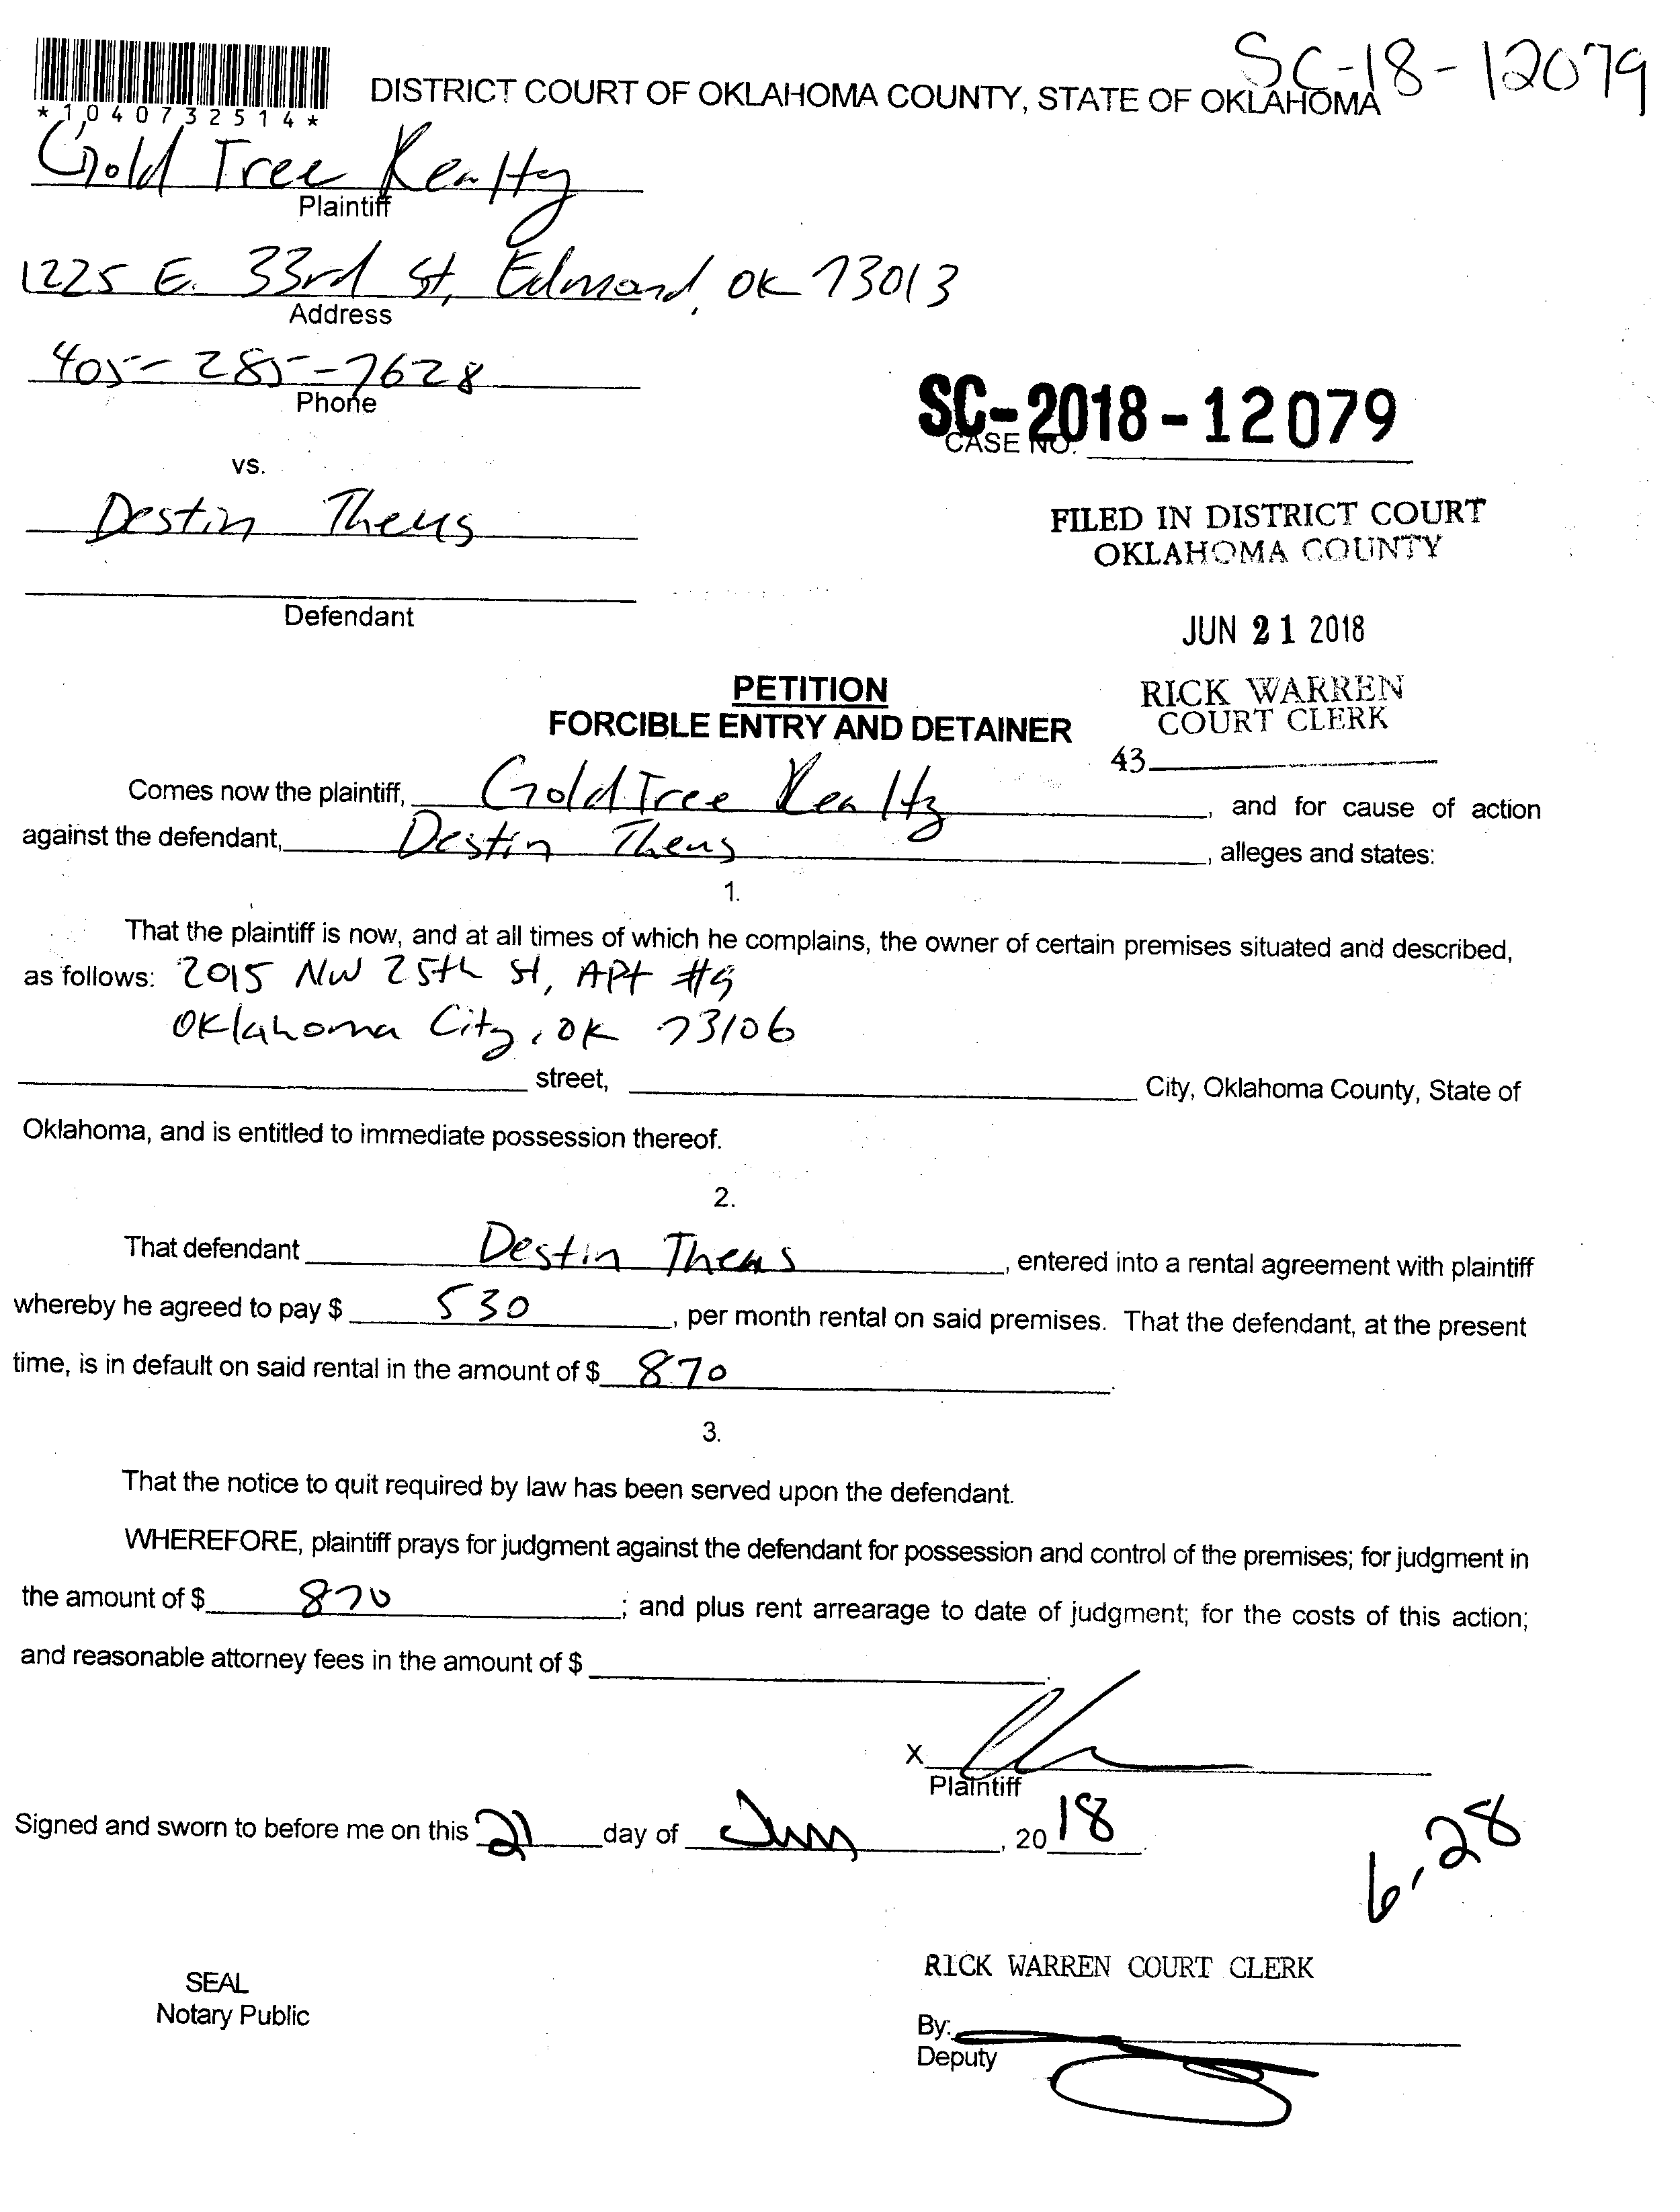 SC-18-12079
*1040732514*
DISTRICT COURT OF OKLAHOMA COUNTY, STATE OF OKLAHOMA
Gold Tree Realty
Plaintiff
1225 E. 33rd St, Edmond, OK 73013
Address
405-285-7628
Phone
SC-2018-12079
CASE NO.
vs.
Destin Theus
FILED IN DISTRICT COURT
OKLAHOMA COUNTY
Defendant
JUN 21 2018
PETITION
FORCIBLE ENTRY AND DETAINER
RICK WARREN
COURT CLERK
43
Comes now the plaintiff, Gold Tree Realty, and for cause of action
against the defendant, Destin Theus, alleges and states:
1.
That the plaintiff is now, and at all times of which he complains, the owner of certain premises situated and described,
as follows: 2015 NW 25th St, APt #9
Oklahoma City, OK 73106
street, City, Oklahoma County, State of
Oklahoma, and is entitled to immediate possession thereof.
2.
That defendant Destin Theus, entered into a rental agreement with plaintiff
whereby he agreed to pay $ 530, per month rental on said premises. That the defendant, at the present
time, is in default on said rental in the amount of $ 870.
3.
That the notice to quit required by law has been served upon the defendant.
WHEREFORE, plaintiff prays for judgment against the defendant for possession and control of the premises; for judgment in
the amount of $ 870; and plus rent arrearage to date of judgment; for the costs of this action;
and reasonable attorney fees in the amount of $ .
X
Plaintiff
Signed and sworn to before me on this 21 day of Jun, 2018.
6,28
RICK WARREN COURT CLERK
SEAL
Notary Public
By:
Deputy